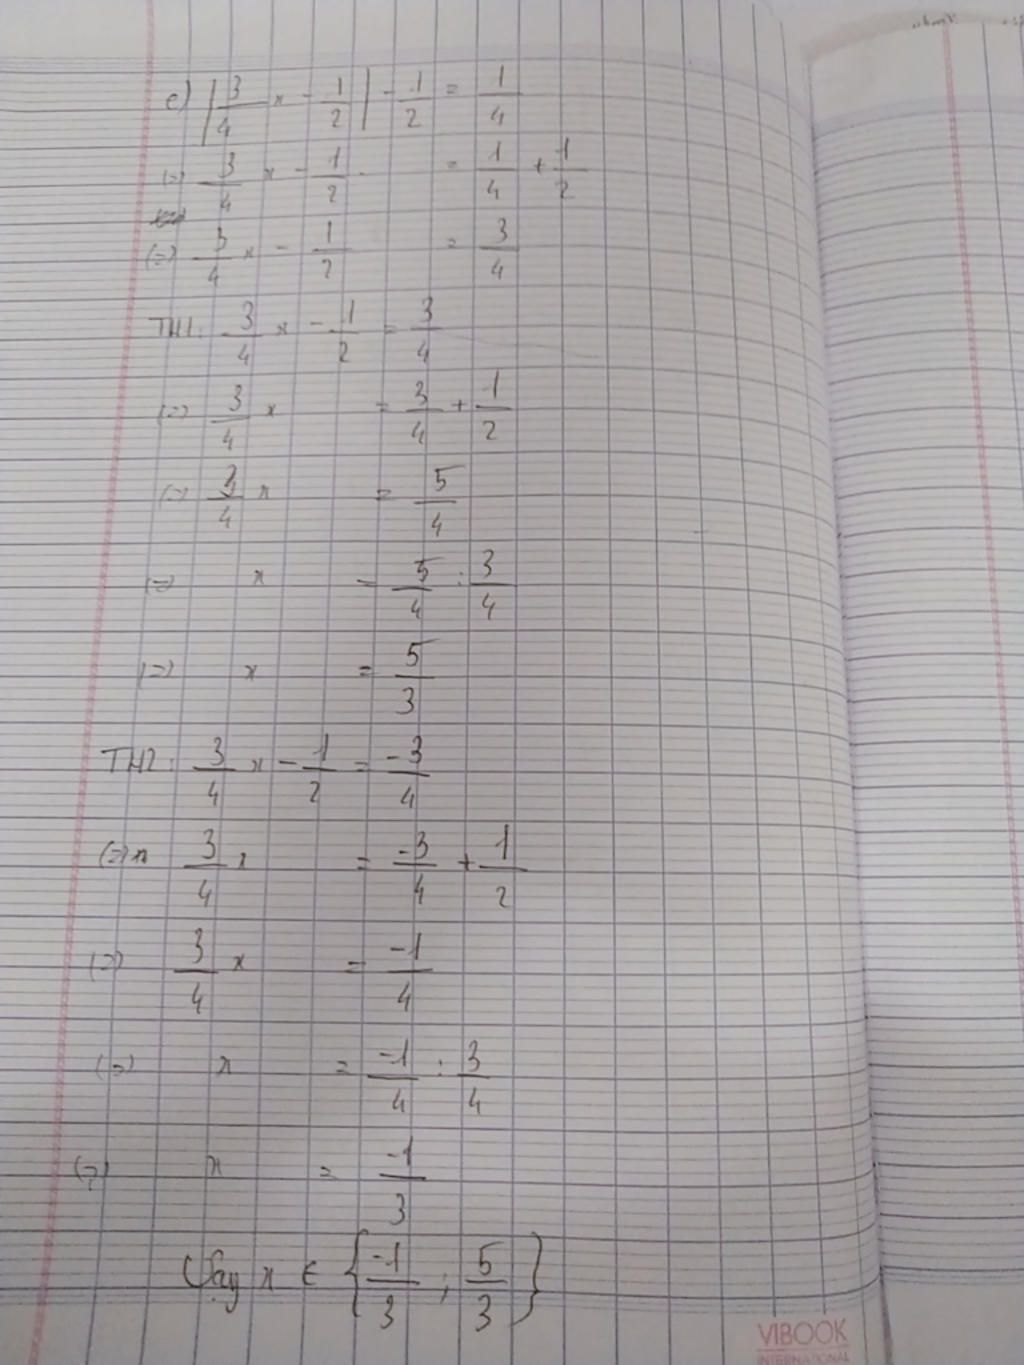 c) |3/4 x - 1/2| - 1/2 = 1/4
(=) 3/4 x - 1/2 = 1/4 + 1/2
(=) 3/4 x - 1/2 = 3/4
TH1: 3/4 x - 1/2 = 3/4
(=) 3/4 x = 3/4 + 1/2
(=) 3/4 x = 5/4
(=) x = 5/4 : 3/4
(=) x = 5/3
TH2: 3/4 x - 1/2 = -3/4
(=) 3/4 x = -3/4 + 1/2
(=) 3/4 x = -1/4
(=) x = -1/4 : 3/4
(=) x = -1/3
Vậy x ∈ {-1/3 ; 5/3}
VIBOOK
INTERNATIONAL